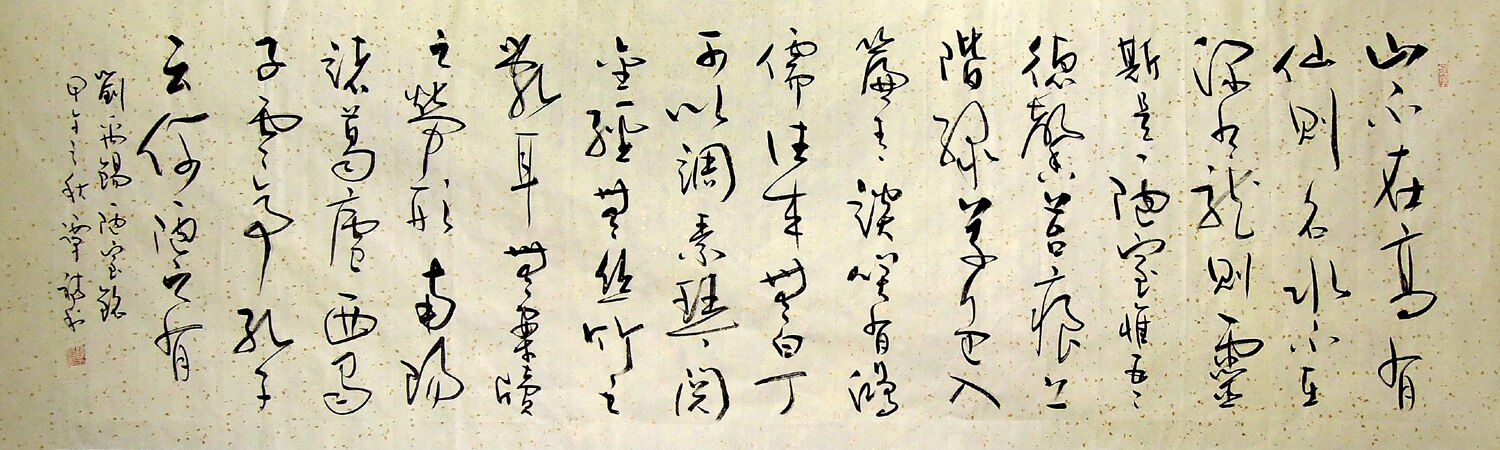 山不在高有
仙則名水不在
深有龍則靈
斯是陋室惟吾
德馨苔痕上
階綠草色入
簾青談笑有鴻
儒往来無白丁
可以調素琴閱
金經無絲竹之
亂耳無案牘
之勞形南陽
諸葛廬西蜀
子雲亭孔子
云何陋之有
劉禹錫陋室銘
甲午之秋